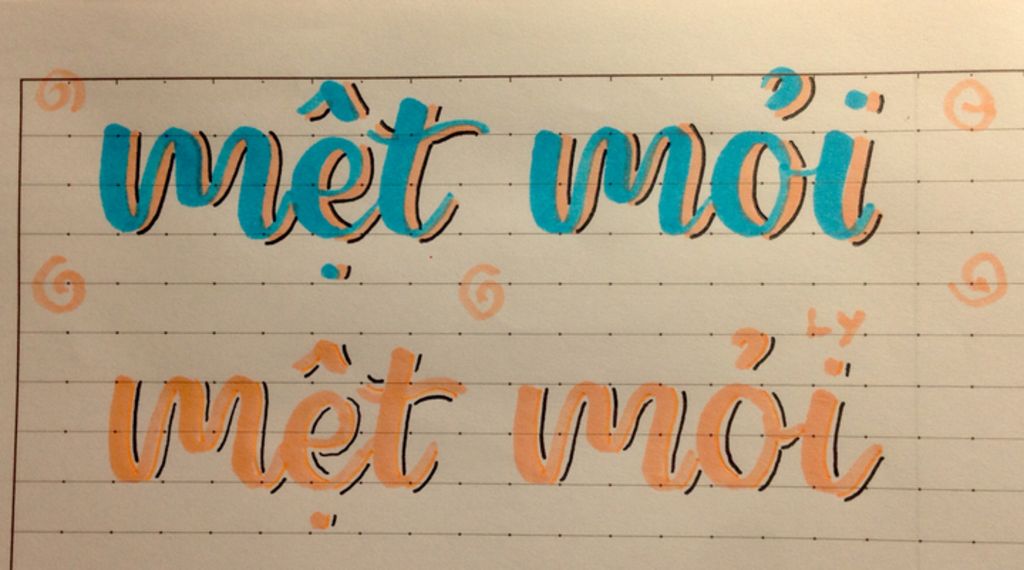 mệt mỏi
LY
mệt mỏi